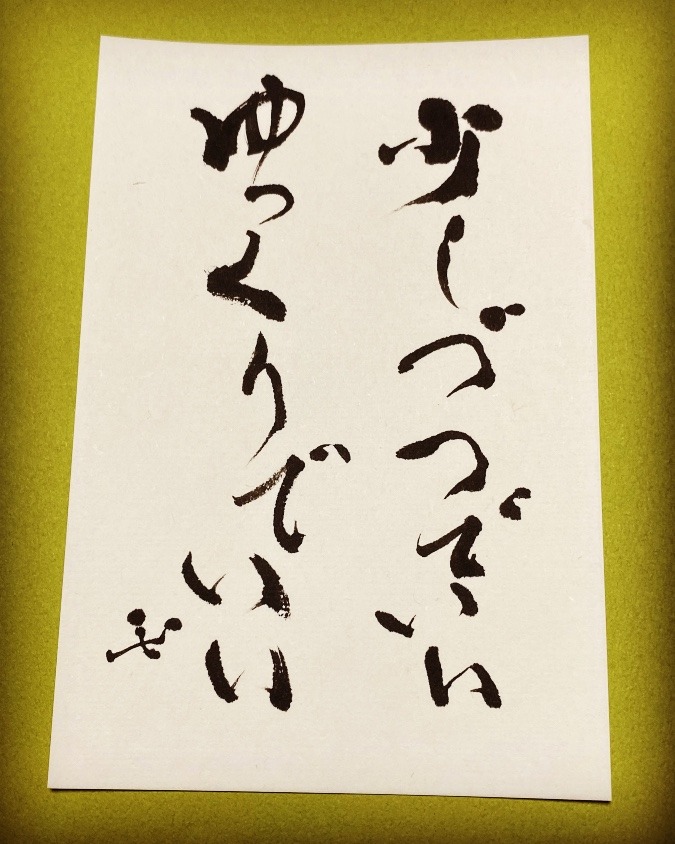 少しづつでいい
ゆっくりでいい